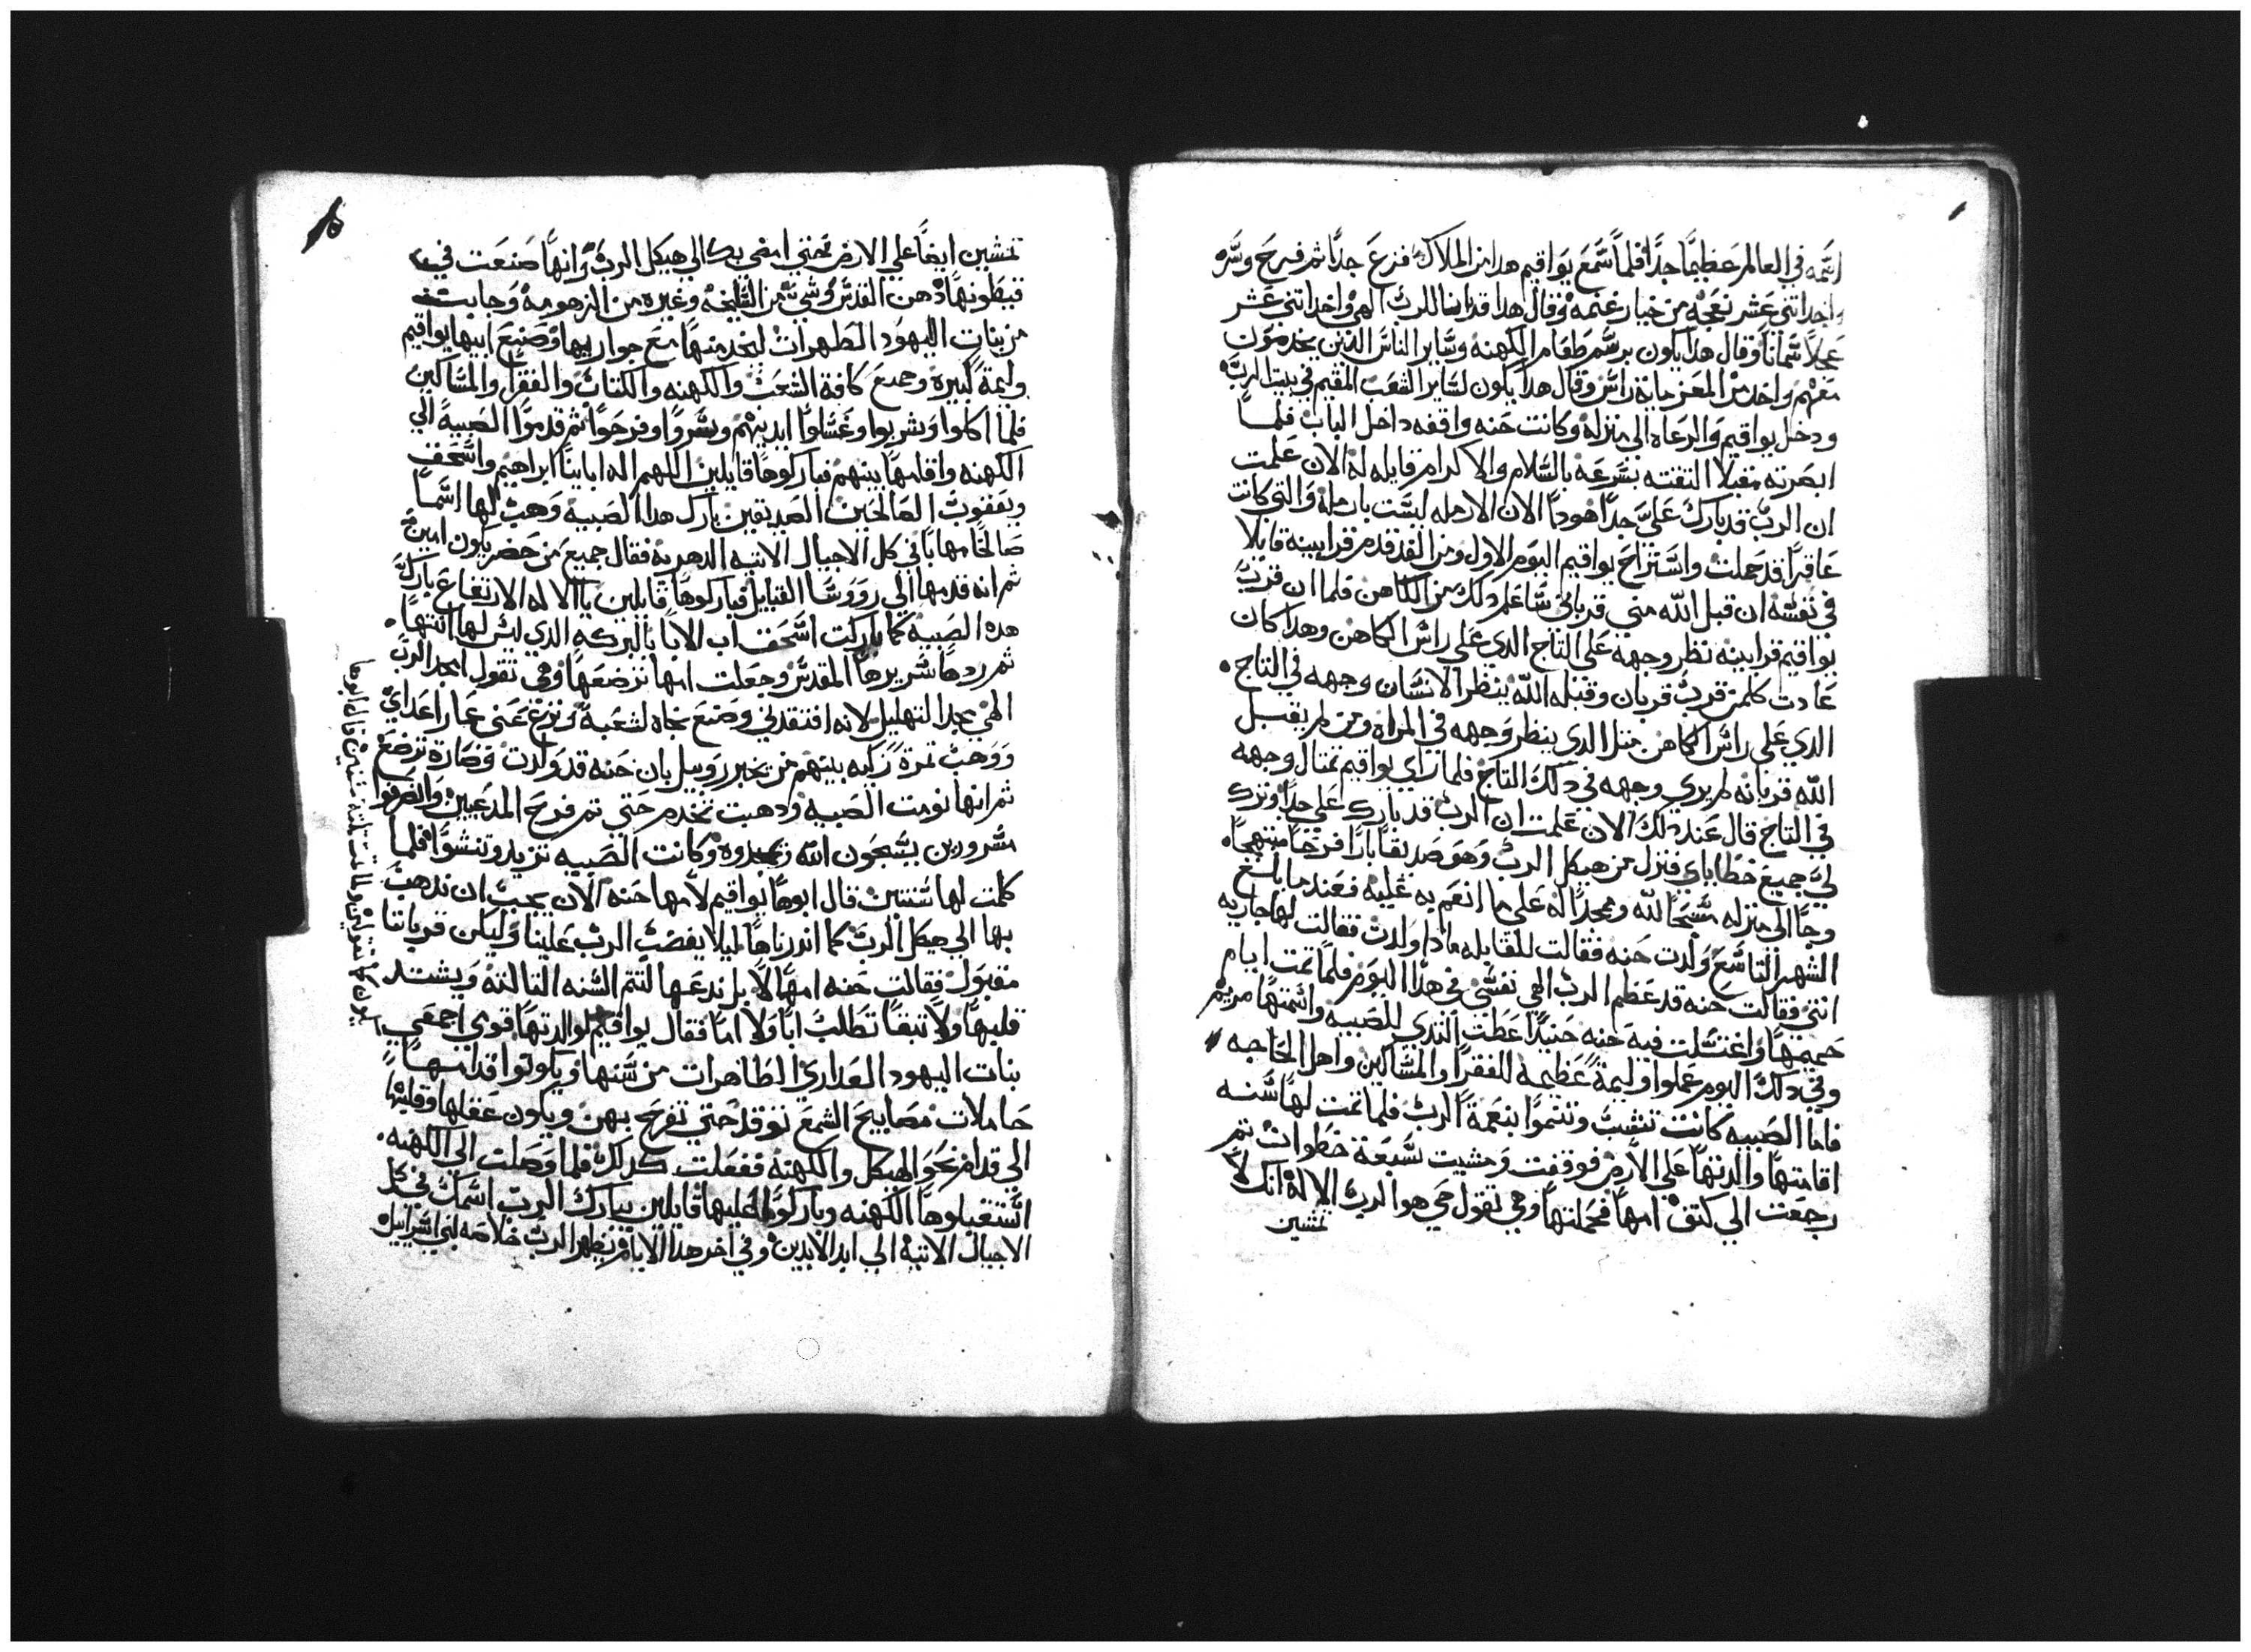 اسمه في العالم عظيمًا جدًا فلما سمع يواقيم هدا من الملاك فزع جدًا ثم فرح وسره
واخد اتني عشر نعجه من خيار غنمه وقال هدا قدانا للرب الهي واخد اتني عشر
عجلاً سمانًا وقال هدا يكون برسم طعام الكهنه وساير الناس الدين يخدمون
معهم واخد من المعز مايه راس وقال هدا يكون لساير الشعب المقيم في بيت الرب
ودخل يواقيم والرعاه الي منزله وكانت حنه واقفه داخل الباب فلما
ابصرته مقبلا التقته بسرعه بالسلام والاكرام قايله له الان علمت
ان الرب قد بارك علي جدًا هودا الان الارمله ليست بارمله والتي كانت
عاقرًا قد حملت واستراح يواقيم اليوم الاول ومن الغد قدم قرابينه قايلا
في نفسه ان قبل الله مني قرباني ساعلم دلك من الكاهن فلما ان قرب
يواقيم قرابينه نظر وجهه علي التاج الدي علي راس الكاهن وهدا كان
عادت كلمن قرب قربان وقبله الله ينظر الانسان وجهه في التاج
الدي علي راس الكاهن متل الدي ينظر وجهه في المراه ومن لم يقبل
الله قربانه لم يري وجهه في دلك التاج فلما راي يواقيم تمتال وجهه
في التاج قال عند دلك الان علمت ان الرب قد بارك علي جدًا وترك
لي جميع خطاياي فنزل من هيكل الرب وهو صديقًا بارًا فرحًا مبتهجًا
وجا الي منزله مسبحًا لله وممجدًا له علي ما انعم به عليه فعندما بلغ
الشهر التاسع ولدت حنه فقالت للقابله مادا ولدت فقالت لها جاريه
انتي فقالت حنه قد عظم الرب الهي نفسي في هدا اليوم فلما تمت ايام
حميمها واغتسلت فيه حنه حنيدًا عطت التدي للصبيه واسمتها مريم
وفي دلك اليوم عملوا وليمةً عظيمه للفقرا والمساكين واهل الحاجه
فاما الصبيه كانت تنشبب وتنموا بنعمة الرب فلما تمت لها سنه
اقامتها والدتها علي الارض فوقفت ومشيت سبعة خطوات تم
رجعت الي كتف امها فحملتها وهي تقول حي هو الرب الاله انك لا
تمشين
تمشين ايضًا علي الارض حتي امضي بك الي هيكل الرب وانها صنعت في
قيطونها دهن القدس وشي من السليخه وغيره من الزهومه وجابت
من بنات اليهود الطهرات ليخدمنها مع جواريها وصنع ابيها يواقيم
وليمة كبيره وجمع كافة الشعب والكهنه والكتاب والفقرا والمساكين
فلما اكلوا وشربوا وغسلوا ايديهم وسروا وفرحوا ثم قدموا الصبيه الي
الكهنه واقامها بينهم فباركوها قايلين اللهم اله اباينا ابراهيم واسحق
ويعقوب الصالحين الصديقين بارك هدا الصبيه وهب لها اسمًا
صالحًا مهابًا في كل الاجيال الاتيه الدهريه فقال جميع من حضر يكون امين
ثم انه قدمها الي رووسا القبايل فباركوها قايلين يا الاله الارتفاع بارك
هده الصبيه كما باركت اسحق اب الابا بالبركه الدي ليس لها انتها
ثم ردها سريرها المقدس وجعلت امها ترضعها وهي تقول امجد الرب
الهي مجد التهليل لانه افتقدني وصنع نجاه لشعبه ونزع عني عار اعداي
ووهب تمرة زكيه بينهم من يخبر روبيل بان حنه قد ولدت وصارة ترضع
ثم انها نومت الصبيه ودهبت تخدم حتي تم فرح المدعيين وانصرفوا
مسرورين يسبحون الله ويمجدوه وكانت الصبيه تزيد وتنشوا فلما
كملت لها سنتين قال ابوها يواقيم لامها حنه الان يجب ان ندهب
بها الي هيكل الرب كما اندرناها ليلا يغضب الرب علينا وليكن قرباننا
مقبول فقالت حنه امها لا بل ندعها لتتم السنه التالته ويشتد
قلبها ولا تبقا تطلب ابًا ولا امًا فقال يواقيم لوالدتها قومي اجمعي
بنات اليهود العداري الطاهرات من سنها ويكونوا قدامها
حاملات مصابيح الشمع توقد حتي تفرح بهن ويكون عقلها وقلبها
الي قدام نحو الهيكل والكهنه ففعلت كدلك فلما وصلت الي الكهنه
استقبلوها الكهنه وباركوا عليها قايلين يبارك الرب اسمك في كل
الاجيال الاتيه الي ابد الابدين وفي اخر هدا الايام يظهر الرب خلاصه لبني اسراييل